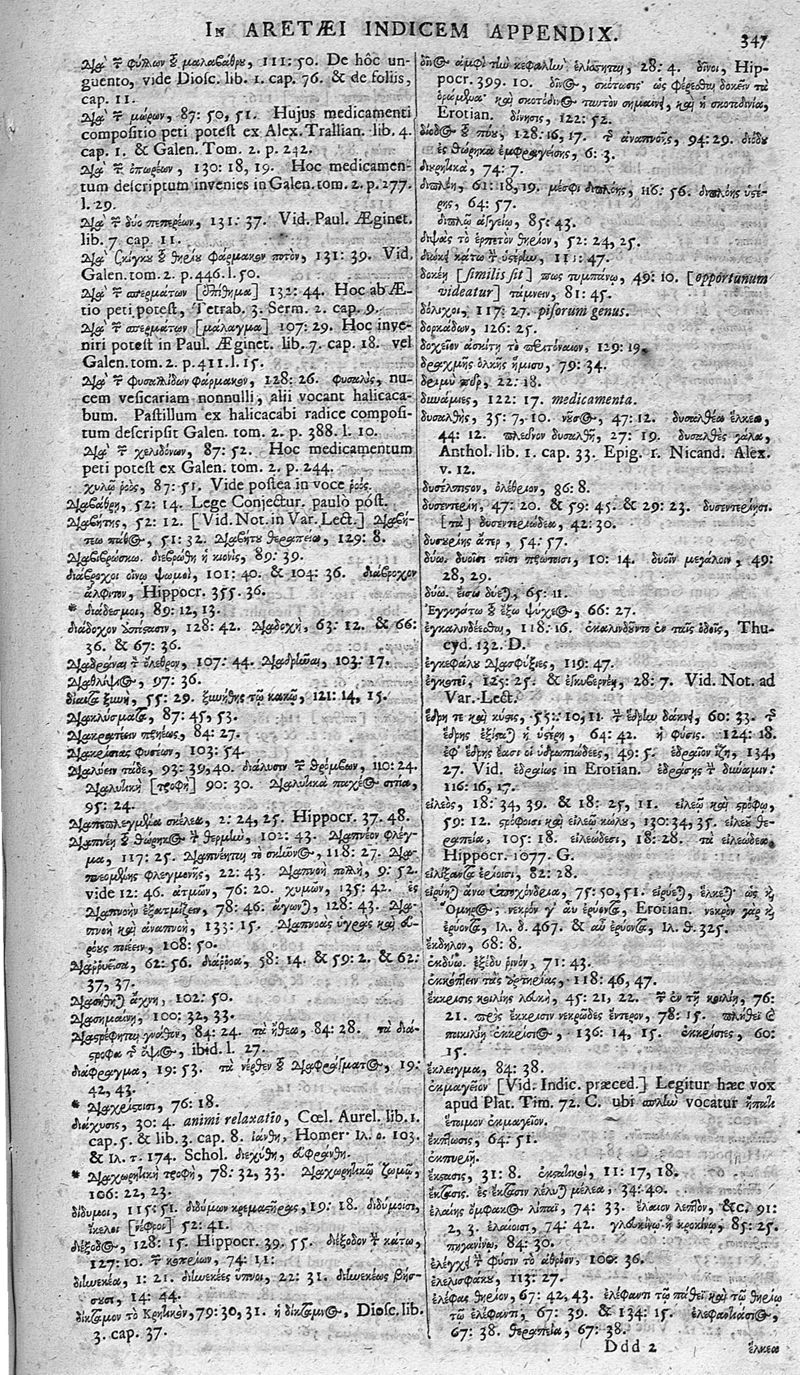 In ARETÆI INDICEM APPENDIX.
347
Διὰ τ φύλλων ȣ μαλαβάθρȣ, 111: 50. De hôc un-
guento, vide Diosc. lib. 1. cap. 76. & de foliis,
cap. 11.
Διὰ τ μώρων, 87: 50, 51. Hujus medicamenti
compositio peti potest ex Alex. Trallian. lib. 4.
cap. 1. & Galen. Tom. 2. p. 242.
Διὰ τ ὀπωρέων, 130: 18, 19. Hoc medicamen-
tum descriptum invenies in Galen. tom. 2. p. 277.
l. 29.
Διὰ τ δύο πεπερέων, 131: 37. Vid. Paul. Æginet.
lib. 7. cap. 11.
φάρμακον ποτὸν, 131: 39. Vid.
Galen. tom. 2. p. 446. l. 50.
Διὰ τ σπερμάτων [ἐπίθημα] 132: 44. Hoc ab Æ-
tio peti potest, Tetrab. 3. Serm. 2. cap. 9.
Διὰ τ σπερμάτων [μάλαγμα] 107: 29. Hoc inve-
niri potest in Paul. Æginet. lib. 7. cap. 18. vel
Galen. tom. 2. p. 411. l. 15.
Διὰ τ φυσαλλίδων φάρμακον, 128: 26. φυσαλὶς, nu-
cem vesicariam nonnulli, alii vocant halicaca-
bum. Pastillum ex halicacabi radice composi-
tum descripsit Galen. tom. 2. p. 388. l. 10.
Διὰ τ χελιδόνων, 87: 52. Hoc medicamentum
peti potest ex Galen. tom. 2. p. 244.
χυλῶ ῥοὸς, 87: 51. Vide postea in voce ῥοὸς.
52: 14. Lege Conjectur. paulò póst.
Διαβήτης, 52: 12. [Vid. Not. in Var. Lect.] Διαβή-
τεω πάθος, 51: 32. Διαβήτȣ θεραπεία, 129: 8.
Διαβιβρώσκω. διεβρώθη ἡ κιονὶς, 89: 39.
διάβροχοι οἴνῳ ψωμοὶ, 101: 40. & 104: 36. διάβροχον
ἄλφιτον, Hippocr. 355. 36.
* διάδεσμοι, 89: 12, 13.
διάδοχον ὑπόστασιν, 128: 42. Διαδοχὴ, 63: 12. & 66:
36. & 67: 36.
ὄλεθρον, 107: 44. 103: 17.
Διάθλιψις, 97: 36.
55: 29. ξυνήθης τῷ κακῷ, 121: 14, 15.
Διακλύσματα, 87: 45, 53.
84: 27.
Διακρίσιας φυσέων, 103: 54.
93: 39, 40. διάλυσιν τ θρόμβων, 110: 24.
Διαλυτικὴ [τροφὴ] 90: 30.
95: 24.
σκέλεα, 2: 24, 25. Hippocr. 37. 48.
102: 43. Διαπνέον φλέγ-
μα, 117: 25. 118: 27. Δια-
φλεγμονῆς, 22: 43. Διαπνοὴ 9: 52.
vide 12: 46. ἀτμῶν, 76: 20. χυμῶν, 135: 42. ἐς
Διαπνοὴν ἐξατμίζειν, 78: 46. 128: 43. Δια-
πνοὴ καὶ ἀναπνοὴ, 133: 15. Διαπνοὰς ὑγρὰς καὶ εὐ-
ρόους ποιέειν, 108: 50.
62: 56. διάρροια, 58: 14. & 59: 2. & 62:
37, 37.
ἄχνη, 102: 50.
Διασημαίνει, 100: 32, 33.
84: 24. τὰ ἤθεα, 84: 28. τὰ διά-
στροφα ibid. l. 27.
διάφραγμα, 19: 53. τὰ νέρθεν ȣ Διαφράγματος, 19:
42, 43.
* 76: 18.
διάχυσις, 30: 4. animi relaxatio, Cœl. Aurel. lib. 1.
cap. 5. & lib. 3. cap. 8. ἰάνθη, Homer. Ιλ. ο. 103.
& Ιλ. τ. 174. Schol. διεχύθη, εὐφράνθη.
* Διαχωρητικὴ τροφὴ, 78: 32, 33. Διαχωρητικῷ ζωμῷ,
106: 22, 23.
δίδυμοι, 115: 51. διδύμων κρεμαστῆρας, 19: 18. διδύμοισι,
ἴκελοι [νέφροι] 52: 41.
διέξοδος, 128: 15. Hippocr. 39. 55. διέξοδον τ κάτω,
127: 10. τ κοπρίων, 74: 11:
διηνεκέα, 1: 21. διηνεκέες ὕπνοι, 22: 31. διηνεκέως βήσ-
σουσι, 14: 44.
δίκταμον τὸ Κρητικὸν, 79: 30, 31. ἡ δίκταμνος, Diosc. lib.
3. cap. 37.
δῖνος ἀμφὶ τὴν κεφαλὴν ἑλίσσηται, 28: 4. δῖνοι, Hip-
pocr. 399. 10. δῖνος, σκότωσις ὡς φέρεσθαι δοκεῖν τὰ
ὁρώμενα καὶ σκοτόδινος ταυτὸν σημαίνει, καὶ ἡ σκοτοδινία,
Erotian. δίνησις, 122: 52.
128: 16, 17. τ ἀναπνοῆς, 94: 29. διόδȣ
ἐς θώρηκα ἐμφραγείσης, 6: 3.
διȣρητικὰ, 74: 7.
διπλόη, 61: 18, 19. μέσφι διπλόης, 116: 56. διπλόης ὑστέ-
ρης, 64: 57.
διπλῷ ἀγγείῳ, 85: 43.
διψὰς τὸ ἑρπετὸν θηρίον, 52: 24, 25.
διώκει κάτω τ ὑστέρην, 111: 47.
δοκέῃ [similis sit] πως τυμπάνῳ, 49: 10. [opportunum
videatur] τάμνειν, 81: 45.
δόλιχοι, 117: 27. pisorum genus.
δορκάδων, 126: 25.
δοχεῖον ἀσκίτῃ τὸ περιτόναιον, 129: 19.
δραχμῆς ὁλκῆς ἥμισυ, 79: 34.
22: 18.
δυνάμιες, 122: 17. medicamenta.
δυσαλθὴς, 35: 7, 10. νοῦσος, 47: 12. δυσαλθέα ἕλκεα,
44: 12. δυσαλθῆ, 27: 19. δυσαλθὲς γάλα,
Anthol. lib. 1. cap. 33. Epig. 1. Nicand. Alex.
v. 12.
δυσέλπιστον, ὀλέθριον, 86: 8.
δυσεντερίη, 47: 20. & 59: 45. & 29: 23. δυσεντερίῃσι.
[τὰ] δυσεντεριώδεα, 42: 30.
δυσουρίης ἄτερ, 54: 57.
δύω. δυοῖσι τοῖσι πρώτοισι, 10: 14. δυοῖν μεγάλοιν, 49:
28, 29.
δύω. εἴσω 65: 11.
Ἐγγυτάτω ȣ ἔξω ψύχεος, 66: 27.
118: 16. ἐν ταῖς ὁδοῖς, Thu-
cyd. 132. D.
ἐγκεφάλου Διασφύξιες, 119: 47.
125: 25. & 28: 7. Vid. Not. ad
Var. Lect.
ἕδρη τε καὶ κύστις, 55: 10, 11. τ ἕδρην δάκνει, 60: 33. τ
ἕδρης ἡ ὑστέρη, 64: 42. ἡ φύσις. 124: 18.
ἐφ' ἕδρης ἔασι οἱ ὑδρωπιώδεες, 49: 5. ἑδραῖον ἵζῃ, 134,
27. Vid. ἑδραίως in Erotian. ἑδράσῃς τ δύναμιν:
116: 16, 17.
εἰλεὸς, 18: 34, 39. & 18: 25, 11. εἰλεῷ καὶ στρόφῳ,
59: 12. στρόφοισι καὶ εἰλεῷ κώλȣ, 130: 34, 35. εἰλεȣ θε-
ραπεία, 105: 18. εἰλεώδεσι, 18: 28. τὰ εἰλεώδεα,
Hippocr. 1077. G.
ἐρίοισι, 82: 28.
εἰρύει ἄνω ὑποχόνδρια, 75: 50, 51. εἰρύει, ἕλκει ὡς καὶ
Ὅμηρος, νεκρὸν γ' ἂν ἐρύοντα, Erotian. νεκρὸν γάρ
ἐρύοντα, Ιλ. δ. 467. & αὖ ἐρύοντα, Ιλ. θ. 325.
ἔκδηλον, 68: 8.
71: 43.
ἐκκόπτειν τὰς ἀρτηρίας, 118: 46, 47.
ἔκκρισις κοιλίης λευκὴ, 45: 21, 22. τ ἐν τῇ κοιλίῃ, 76:
21. πρὸς ἔκκρισιν νεκρῶδες ἔντερον, 78: 15. πλήθει
ποικίλῃ ἐκκρίσιος, 136: 14, 15. ἐκκρίσιες, 60:
15.
ἔκλειγμα, 84: 38.
ἐκμαγεῖον [Vid. Indic. præced.] Legitur hæc vox
apud Plat. Tim. 72. C. ubi σπλὴν vocatur ἥπατι
ἕτοιμον ἐκμαγεῖον.
ἔκπτωσις, 64: 51.
ἐκπυριῇν.
ἔκστασις, 31: 8. ἐκστατικοὶ, 11: 17, 18.
ἔκτασις. ἐς ἔκτασιν λέλυται μέλεα, 34: 40.
ἐλαίης ὄμφακος λίπαϊ, 74: 33. ἔλαιον λεπτὸν, &c. 91:
2, 3. ἐλαίοισι, 74: 42. γλευκίνῳ ἢ κροκίνῳ, 85: 25.
πηγανίνῳ, 84: 30.
ἐλέγχει τ φύσιν τὸ ἀθρέον, 100: 36.
ἐλελισφάκȣ, 113: 27.
ἐλέφας θηρίον, 67: 42, 43. ἐλέφαντι τῷ πάθεϊ καὶ τῷ θηρίῳ
τῷ ἐλέφαντι, 67: 39. & 134: 15. ἐλεφαντίασις,
67: 38. θεραπεία, 67: 38.
Ddd 2
ἕλκεα